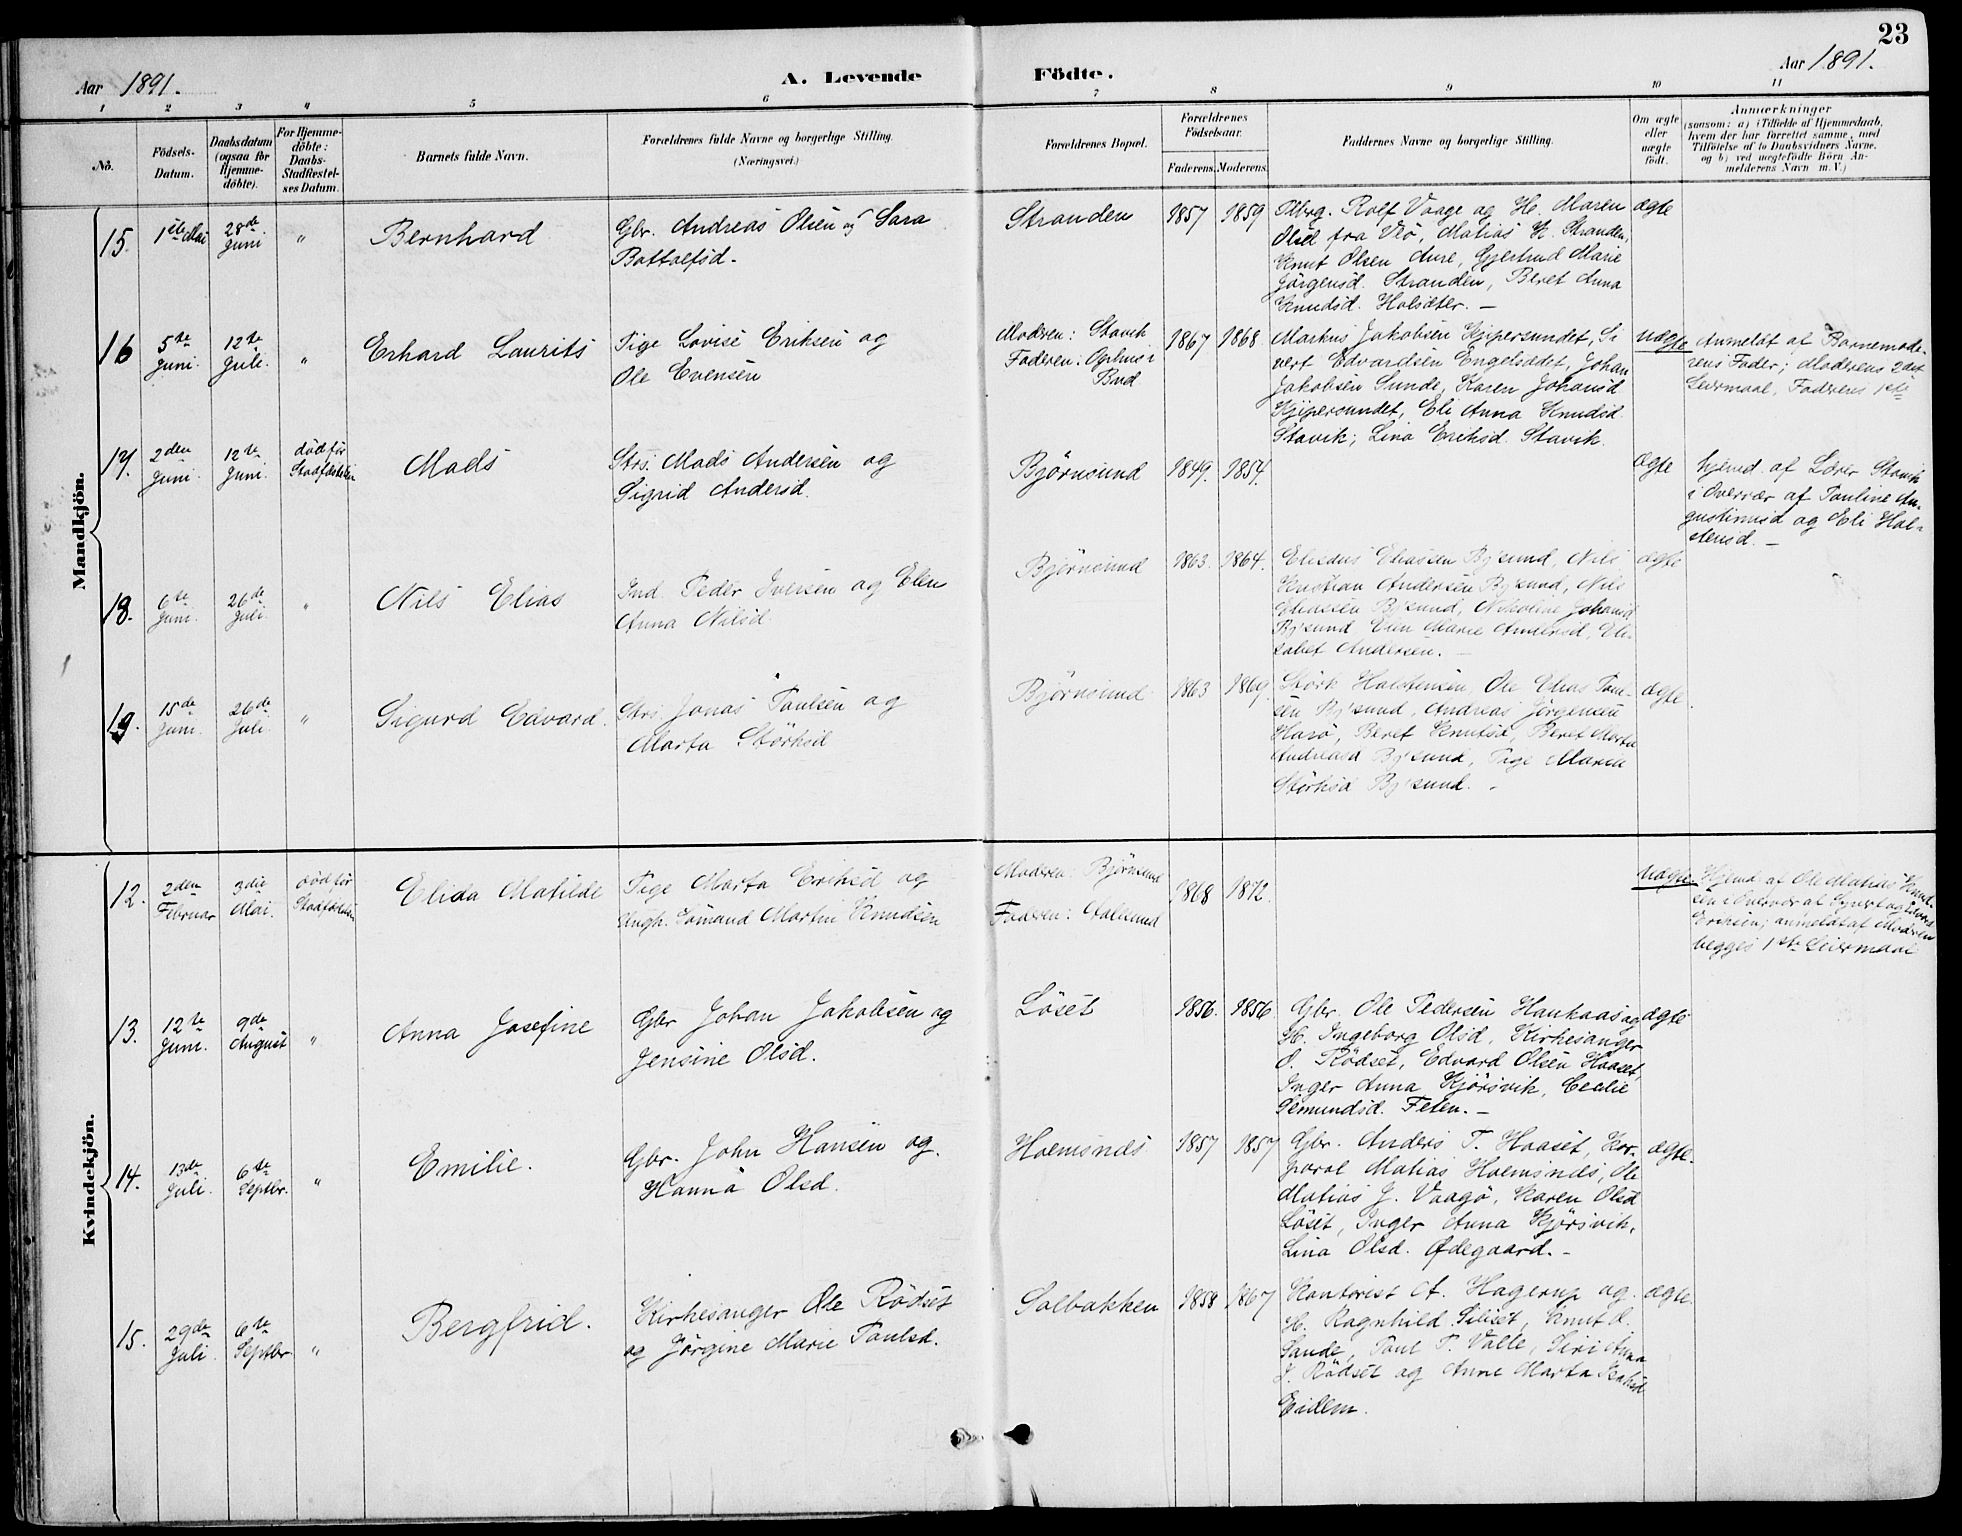 23
Aar 1891.
A. Levende
Födte.
Aar 1891.
1 2 3 4 5 6 7 8 9 10 11
No.
Födsels-
Datum.
Daabsdatum
(ogsaa for
Hjemme-
döbte).
For Hjemme-
döbte:
Daabs-
Stadfæstel-
ses Datum.
Barnets fulde Navn.
Forældrenes fulde Navne og borgerlige Stilling.
(Næringsvei.)
Forældrenes Bopæl.
Forældrenes
Födselsaar.
Faderens. Moderens.
Faddernes Navne og borgerlige Stilling.
Om ægte
eller
uægte
födt.
Anmærkninger
(saasom: a) i Tilfælde af Hjemmedaab,
hvem der har forrettet samme, med
Tilföielse af to Daabsvidners Navne,
og b) ved uægtefödte Börn An-
melderens Navn m. V.)
Mandkjön.
15. 1ste Mai
28de
Juni
"
Bernhard
Gbr. Andreas Olsen og Sara
Bottolfsd.
Stranden
1857 1859
Rolf Vaage og H. Maren
Olsd fra Veö, Matias K. Stranden,
Knut Olsen Aure, Gjertrud Marie
Jörgensd. Stranden, Beret Anna
Knudsd. Holsæter. —
ægte
16
5te
Juni.
12te
Juli.
"
Erhard Laurits
Pige Lovise Eriksen og
Ole Evensen
Modren: Stavik
Fadren: Ophus i
Bud
1867 1868
Markus Jakobsen Kjipersundet, Si
vert Edvardsen Engelsædet, Johan
Jakobsen Sunde, Karen Johansd
Kjipersundet, Eli Anna Knudsd.
Stavik; Lina Eriksd. Stavik.
uægte
Anmeldt af Barnemode-
rens Fader; Moderens 2det
Leiermaal, Faderens 1ste
17.
2den
Juni.
12te
Juni.
död för
Stadfæstelsen
Mads
Strs. Mads Andersen og
Sigrid Andersd.
Björnsund
1849. 1854.
ægte
hjemd. af Lærer Stavik
i Overvær af Pauline Au-
gustinusd og Eli Hal-
stensd. —
18.
6te
Juni.
26de
Juli.
"
Nils Elias
Ind. Peder Iversen og Elen
Anna Nilsd.
Björnsund
1863. 1864.
Eliassen Bj'sund, Nils
Kristian Andersen Bj'sund, Nils
Eliassen Bj'sund, Nikoline Johansd
Bj'sund Elen Marie Andersd, Eli-
sabet Andersen. —
ægte
19.
15de
Juni.
26de
Juli.
"
Sigurd Edvard.
Strs. Jonas Paulsen og
Marta Störksd
Björnsund
1863 1869.
Störk Halstensen, Ole Elias Paul-
sen Bj'sund, Andreas Jörgensen
Harö, Beret Knutsd, Beret Marta
Andreasd Bj'sund, Pige Maren
Störksd Bj'sund. -
ægte.
Kvindekjön.
12.
2den
Februar
3die
Mai.
död för
Stadfæstelsen
Elida Matilde
Pige Marta Eriksd og
Ungk. Sömand Martin Knudsen
Modren: Björnsund
Fadren: Aalesund
1868 1872.
uægte
Hjemd. af Ole Matias Knud-
sen i Overvær af Syvert og Edvard
Eriksen; anmeldt af Modren
begges 1ste Leiermaal
13.
12te
Juni.
9de
August
"
Anna Josefine
Gbr Johan Jakobsen og
Jensine Olsd.
Löset
1856. 1856.
Gbr. Ole Pedersen Haukaas og
H. Ingeborg Olsd, Kirkesanger
O. Rödset, Edvard Olsen Haaset,
Inger Anna Kjörsvik, Cecilie
Gemundsd. Feten. —
ægte
14.
13de
Juli.
6te
Septbr.
"
Emilie.
Gbr. John Hansen og
Hanna Olsd.
Holmsnæs
1857 1857
Gbr. Anders T. Haaset, Kor-
poral Matias Holmsnæs, Ole
Matias J. Vaagö, Karen Olsd
Löset, Inger Anna Kjörsvik,
Lina Olsd. Ødegaard. -
ægte.
15.
29de
Juli.
6te
Septbr.
"
Bergfrid.
Kirkesanger Ole Rödset
og Jörgine Marie Paulsd.
Solbakken
1858 1867
Kontorist A. Hagerup og
H. Ragnhild Silset, Knut O.
Sande, Paul P. Valle, Siri Anna
J. Rödset og Anne Marta Isaksd
Eidem.
ægte.